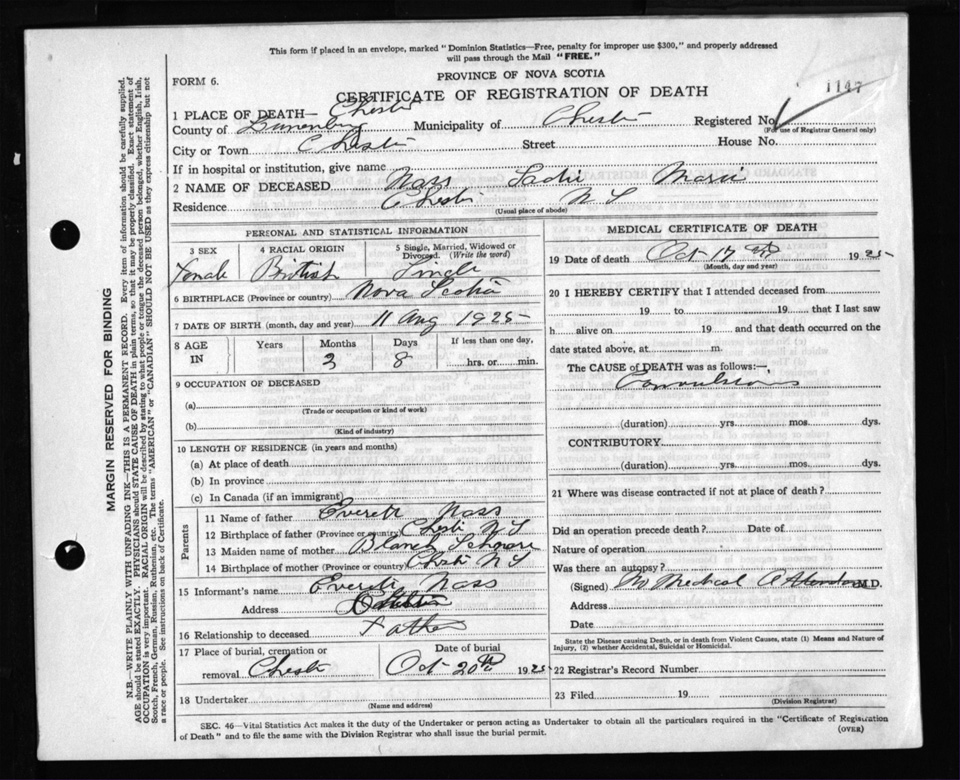 This form if placed in an envelope, marked "Dominion Statistics—Free, penalty for improper use $300," and properly addressed
will pass through the Mail "FREE."
FORM 6.
PROVINCE OF NOVA SCOTIA
1147
CERTIFICATE OF REGISTRATION OF DEATH
1 PLACE OF DEATH— Chester
County of Lunenburg Municipality of Chester Registered No.
(For use of Registrar General only)
City or Town Chester Street House No.
If in hospital or institution, give name
2 NAME OF DECEASED Nass Marie
Residence Chester N S
(Usual place of abode)
PERONAL AND STATISTICAL INFORMATION
3 SEX 4 RACIAL ORIGIN 5 Single, Married, Widowed or Divorced. (Write the word)
Female British Single
6 BIRTHPLACE (Province or country) Nova Scotia
7 DATE OF BIRTH (month, day and year) 11 Aug 1925
8 AGE IN Years Months Days If less than one day,
8 hrs. or min.
9 OCCUPATION OF DECEASED
(a)
(Trade or occupation or kind of work)
(b)
(Kind of industry)
10 LENGTH OF RESIDENCE (in years and months)
(a) At place of death
(b) In province
(c) In Canada (if an immigrant)
Parents
11 Name of father Everett Nass
12 Birthplace of father (Province or country) Chester N S
13 Maiden name of mother Blanch
14 Birthplace of mother (Province or country) Chester N S
15 Informant's name Everett Nass
Address
16 Relationship to deceased Father
17 Place of burial, cremation or removal Chester Date of burial Oct 20th 1925
18 Undertaker
(Name and address)
MEDICAL CERTIFICATE OF DEATH
19 Date of death Oct 17 1925
(Month, day and year)
20 I HEREBY CERTIFY that I attended deceased from
19 to 19 that I last saw
h alive on 19 and that death occurred on the
date stated above, at m.
The CAUSE of DEATH was as follows:—
Convulsions
(duration) yrs. mos. dys.
CONTRIBUTORY
(duration) yrs. mos. dys.
21 Where was disease contracted if not at place of death?
Did an operation precede death? Date of
Nature of operation
Was there an autopsy?
(Signed) No Medical Attendance M.D.
Address
Date
State the Disease causing Death, or in death from Violent Causes, state (1) Means and Nature of
Injury, (2) whether Accidental, Suicidal or Homicidal.
22 Registrar's Record Number
23 Filed 19
(Division Registrar)
SEC. 46—Vital Statistics Act makes it the duty of the Undertaker or person acting as Undertaker to obtain all the particulars required in the "Certificate of Registration
of Death" and to file the same with the Division Registrar who shall issue the burial permit. (OVER)
MARGIN RESERVED FOR BINDING
N.B.—WRITE PLAINLY WITH UNFADING INK—THIS IS A PERMANENT RECORD. Every item of information should be carefully supplied.
AGE should be stated EXACTLY. PHYSICIANS should STATE CAUSE OF DEATH in plain terms, so that it may be properly classified. Exact statement of
OCCUPATION is very important. RACIAL ORIGIN will be described by stating to what people or tongue the deceased person belonged, whether English, Irish,
Scotch, French, German, Russian, Ruthenian, etc. The terms "AMERICAN" or "CANADIAN" SHOULD NOT BE USED as they express citizenship but not
a race or people. See instructions on back of Certificate.